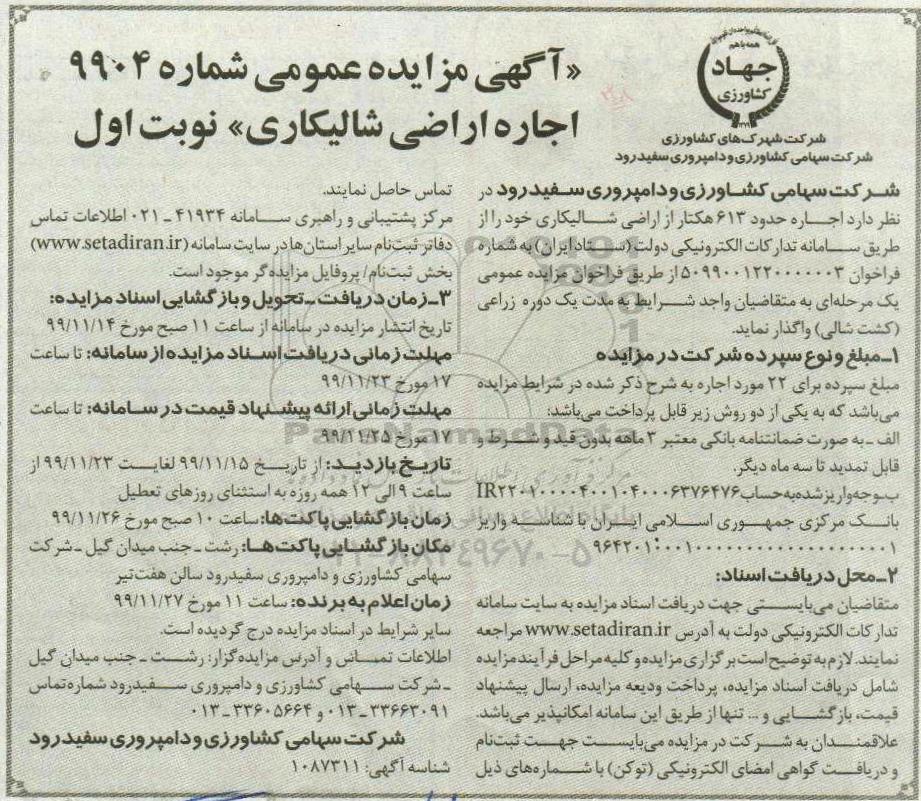 همه با هم
جهاد
کشاورزی
شرکت شهرک‌های کشاورزی
شرکت سهامی کشاورزی و دامپروری سفیدرود
«آگهی مزایده عمومی شماره ۹۹۰۴
اجاره اراضی شالیکاری» نوبت اول
شرکت سهامی کشاورزی و دامپروری سفیدرود در
نظر دارد اجاره حدود ۶۱۳ هکتار از اراضی شالیکاری خود را از
طریق سامانه تدارکات الکترونیکی دولت (ستاد ایران) به شماره
فراخوان ۵۰۹۹۰۰۱۲۲۰۰۰۰۰۰۳ از طریق فراخوان مزایده عمومی
یک مرحله‌ای به متقاضیان واجد شرایط به مدت یک دوره زراعی
(کشت شالی) واگذار نماید.
۱ـ مبلغ و نوع سپرده شرکت در مزایده
مبلغ سپرده برای ۲۲ مورد اجاره به شرح ذکر شده در شرایط مزایده
می‌باشد که به یکی از دو روش زیر قابل پرداخت می‌باشد:
الف ـ به صورت ضمانتنامه بانکی معتبر ۳ ماهه بدون قید و شرط و
قابل تمدید تا سه ماه دیگر.
ب ـ وجه واریز شده به حساب IR۲۲۰۱۰۰۰۰۴۰۰۱۰۴۰۰۰۶۳۷۶۴۷۶
بانک مرکزی جمهوری اسلامی ایران با شناسه واریز
۲ـ محل دریافت اسناد:
متقاضیان می‌بایستی جهت دریافت اسناد مزایده به سایت سامانه
تدارکات الکترونیکی دولت به آدرس www.setadiran.ir مراجعه
نمایند. لازم به توضیح است برگزاری مزایده و کلیه مراحل فرآیند مزایده
شامل دریافت اسناد مزایده، پرداخت ودیعه مزایده، ارسال پیشنهاد
قیمت، بازگشایی و ... تنها از طریق این سامانه امکانپذیر می‌باشد.
علاقمندان به شرکت در مزایده می‌بایست جهت ثبت‌نام
و دریافت گواهی امضای الکترونیکی (توکن) با شماره‌های ذیل
تماس حاصل نمایند.
مرکز پشتیبانی و راهبری سامانه ۴۱۹۳۴ ـ ۰۲۱ اطلاعات تماس
دفاتر ثبت‌نام سایر استان‌ها در سایت سامانه (www.setadiran.ir)
بخش ثبت‌نام/ پروفایل مزایده‌گر موجود است.
۳ـ زمان دریافت ـ تحویل و بازگشایی اسناد مزایده:
تاریخ انتشار مزایده در سامانه از ساعت ۱۱ صبح مورخ ۹۹/۱۱/۱۴
مهلت زمانی دریافت اسناد مزایده از سامانه: تا ساعت
۱۷ مورخ ۹۹/۱۱/۲۳
مهلت زمانی ارائه پیشنهاد قیمت در سامانه: تا ساعت
۱۷ مورخ ۹۹/۱۱/۲۵
تاریخ بازدید: از تاریخ ۹۹/۱۱/۱۵ لغایت ۹۹/۱۱/۲۳ از
ساعت ۹ الی ۱۲ همه روزه به استثنای روزهای تعطیل
زمان بازگشایی پاکت‌ها: ساعت ۱۰ صبح مورخ ۹۹/۱۱/۲۶
مکان بازگشایی پاکت‌ها: رشت ـ جنب میدان گیل ـ شرکت
سهامی کشاورزی و دامپروری سفیدرود سالن هفت‌تیر
زمان اعلام به برنده: ساعت ۱۱ مورخ ۹۹/۱۱/۲۷
سایر شرایط در اسناد مزایده درج گردیده است.
اطلاعات تماس و آدرس مزایده‌گزار: رشت ـ جنب میدان گیل
ـ شرکت سهامی کشاورزی و دامپروری سفیدرود شماره تماس
۳۳۶۶۳۰۹۱ ـ ۰۱۳ و ۳۳۶۰۵۶۶۴ ـ ۰۱۳
شرکت سهامی کشاورزی و دامپروری سفیدرود
شناسه آگهی: ۱۰۸۷۳۱۱
ParsNamadData